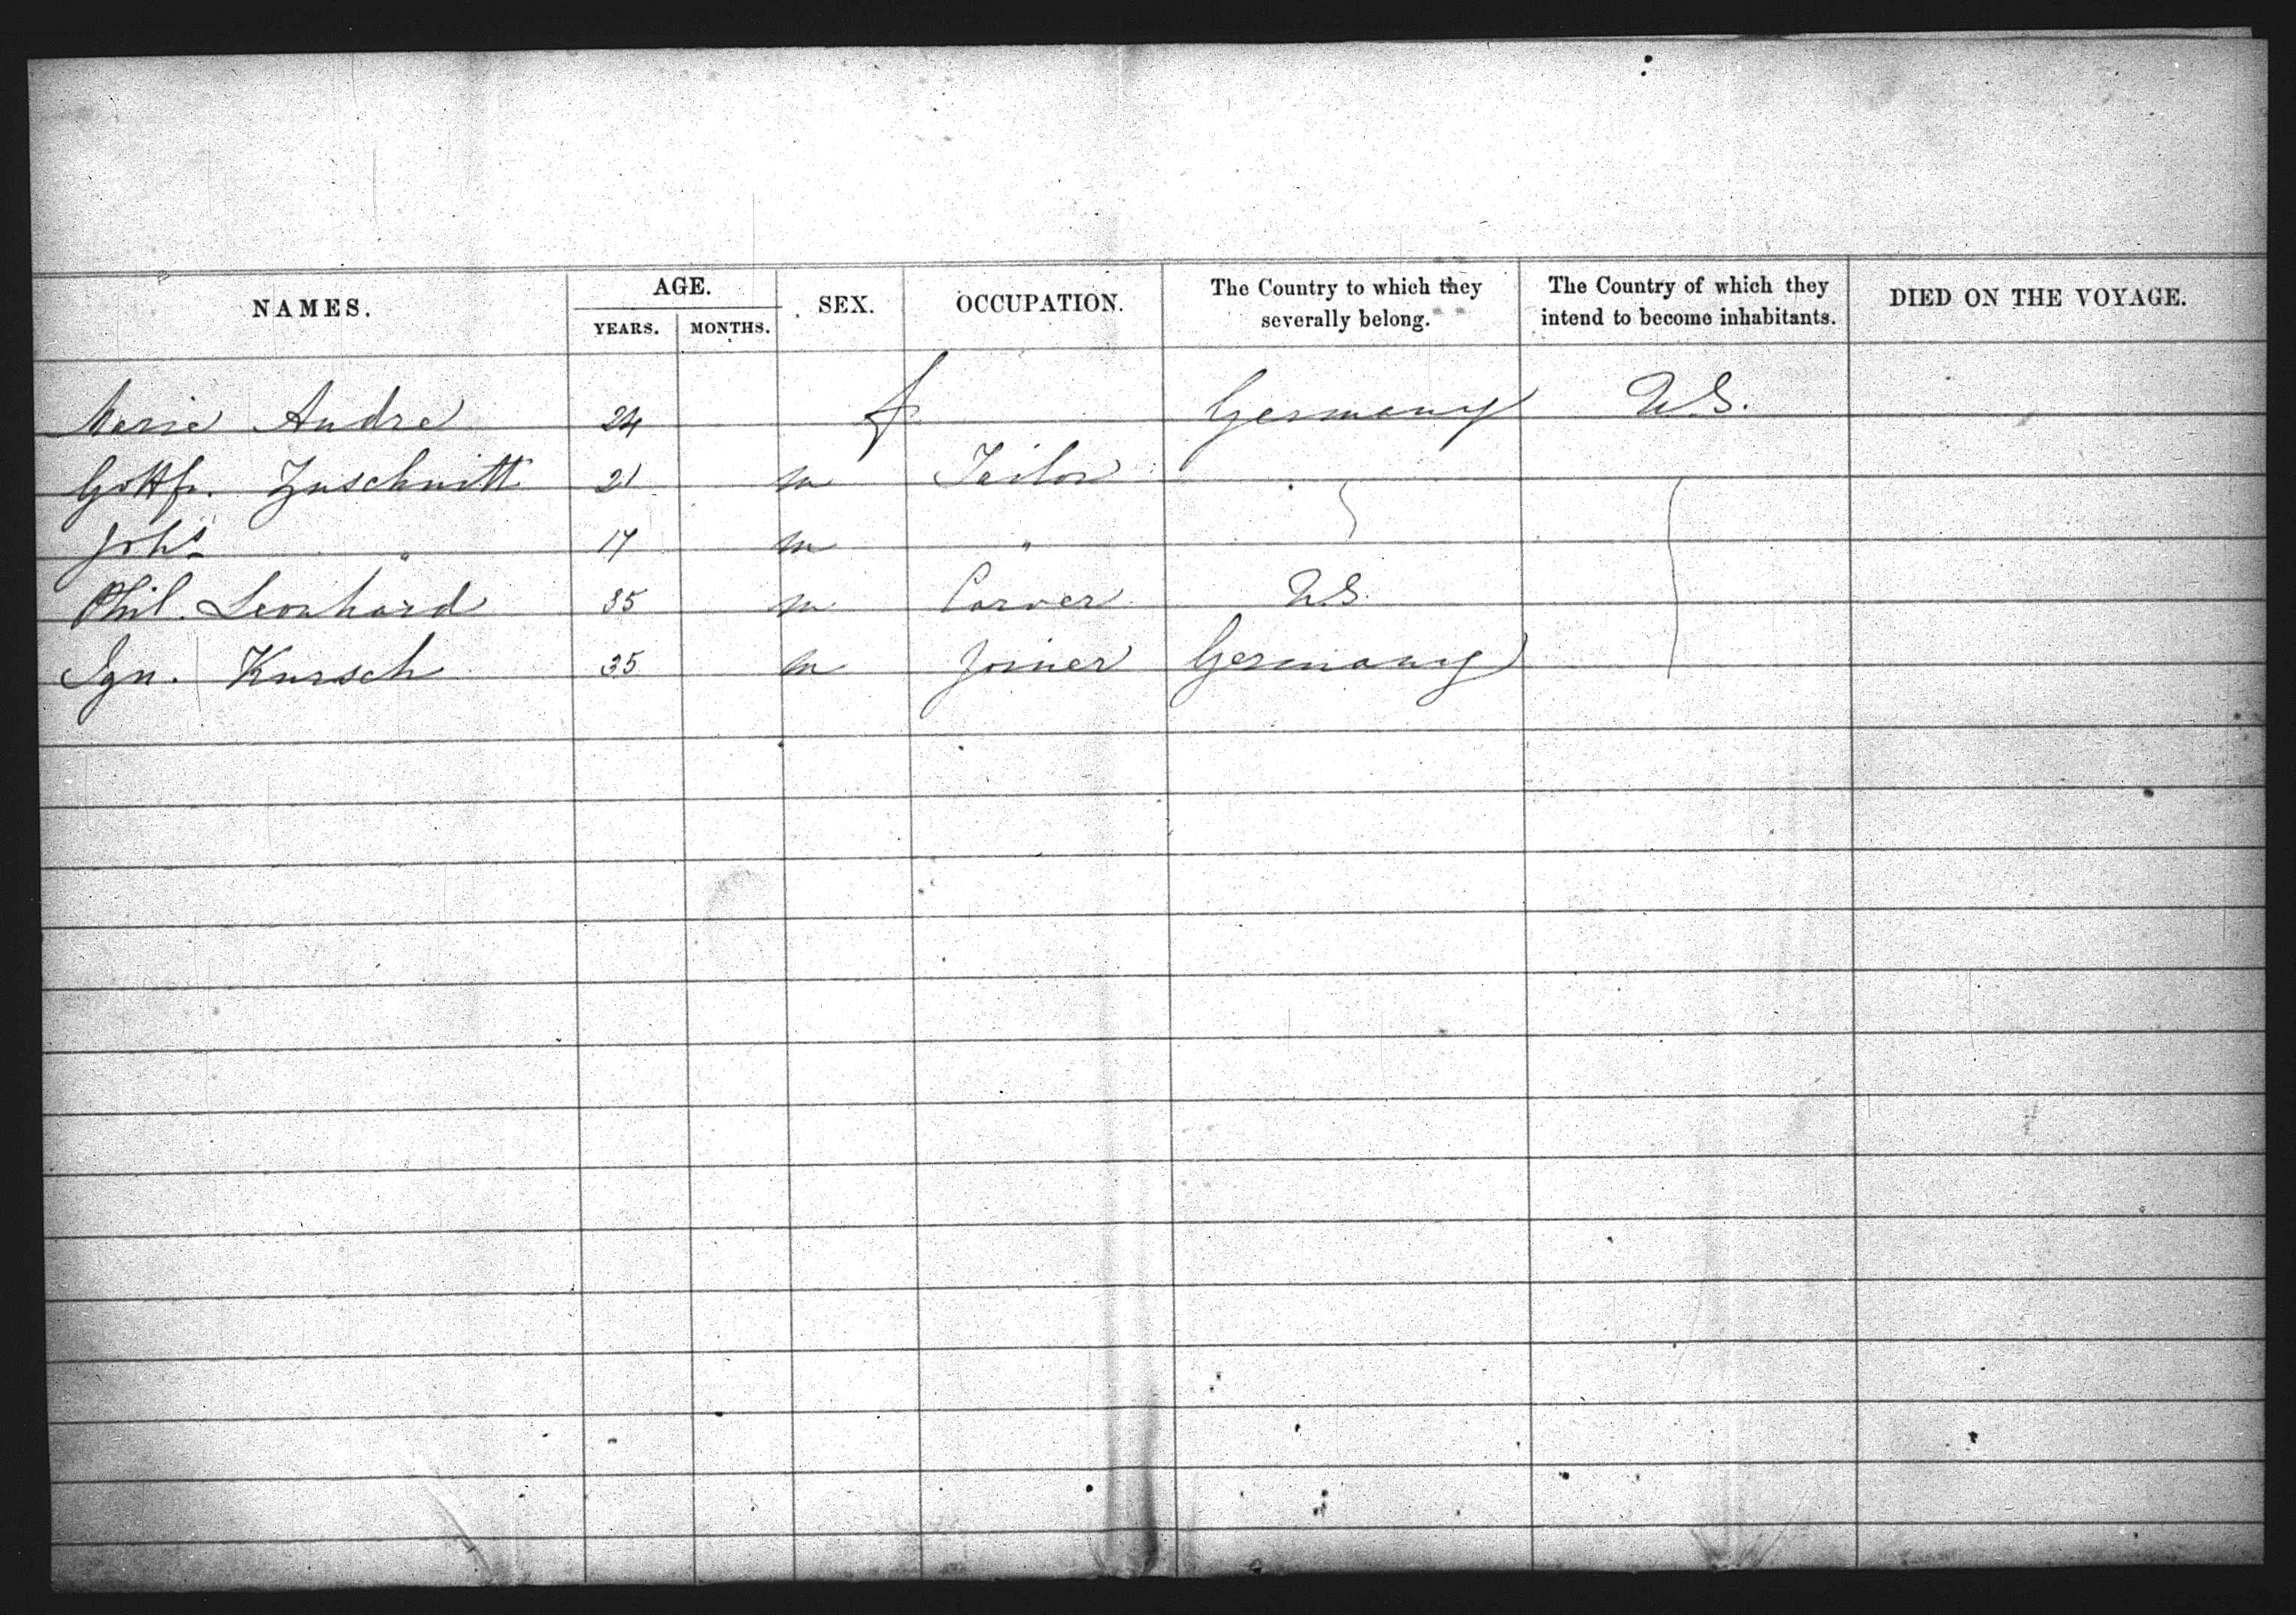 NAMES. AGE. SEX. OCCUPATION. The Country to which they severally belong. The Country of which they intend to become inhabitants. DIED ON THE VOYAGE.
YEARS. MONTHS.
Marie Andre 24 f Germany U.S.
Gottfr. Zuschnitt 21 m Tailor
Johs " 17 m "
Phil. Leonhard 35 m Carver U.S.
Ign. Kursch 35 m Joiner Germany